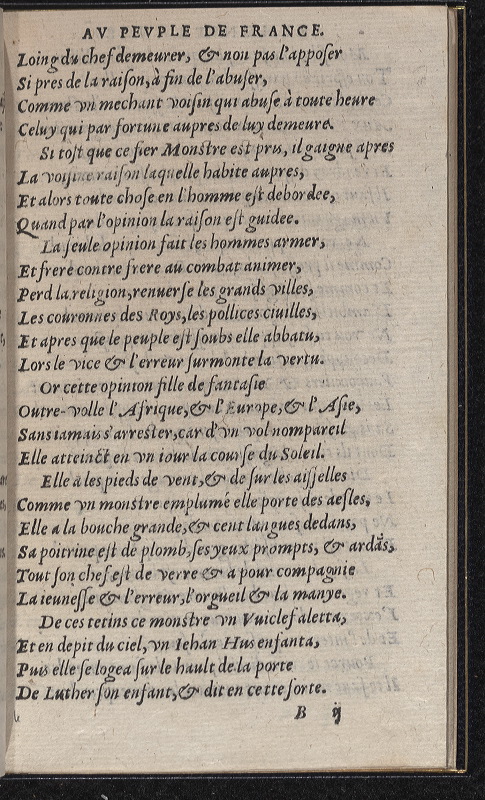 AV PEVPLE DE FRANCE.
Loing du chef demeurer, & non pas l'apposer
Si pres de la raison, à fin de l'abuser,
Comme vn mechant voisin qui abuse à toute heure
Celuy qui par fortune aupres de luy demeure.
Si tost que ce fier Monstre est pris, il gaigne apres
La voisine raison laquelle habite aupres,
Et alors toute chose en l'homme est debordee,
Quand par l'opinion la raison est guidee.
La seule opinion fait les hommes armer,
Et frere contre frere au combat animer,
Perd la religion, renuerse les grands villes,
Les couronnes des Roys, les pollices ciuilles,
Et apres que le peuple est soubs elle abbatu,
Lors le vice & l'erreur surmonte la vertu.
Or cette opinion fille de fantasie
Outre-volle l'Afrique, & l'Europe, & l'Asie,
Sans iamais s'arrester, car d'vn vol nompareil
Elle atteinct en vn iour la course du Soleil.
Elle a les pieds de vent, & de sur les aisselles
Comme vn monstre emplumé elle porte des aesles,
Elle a la bouche grande, & cent langues dedans,
Sa poitrine est de plomb, ses yeux prompts, & ardãs,
Tout son chef est de verre & a pour compagnie
La ieunesse & l'erreur, l'orgueil & la manye.
De ces tetins ce monstre vn Vuiclef aletta,
Et en depit du ciel, vn Iehan Hus enfanta,
Puis elle se logea sur le hault de la porte
De Luther son enfant, & dit en cette sorte.
B ij